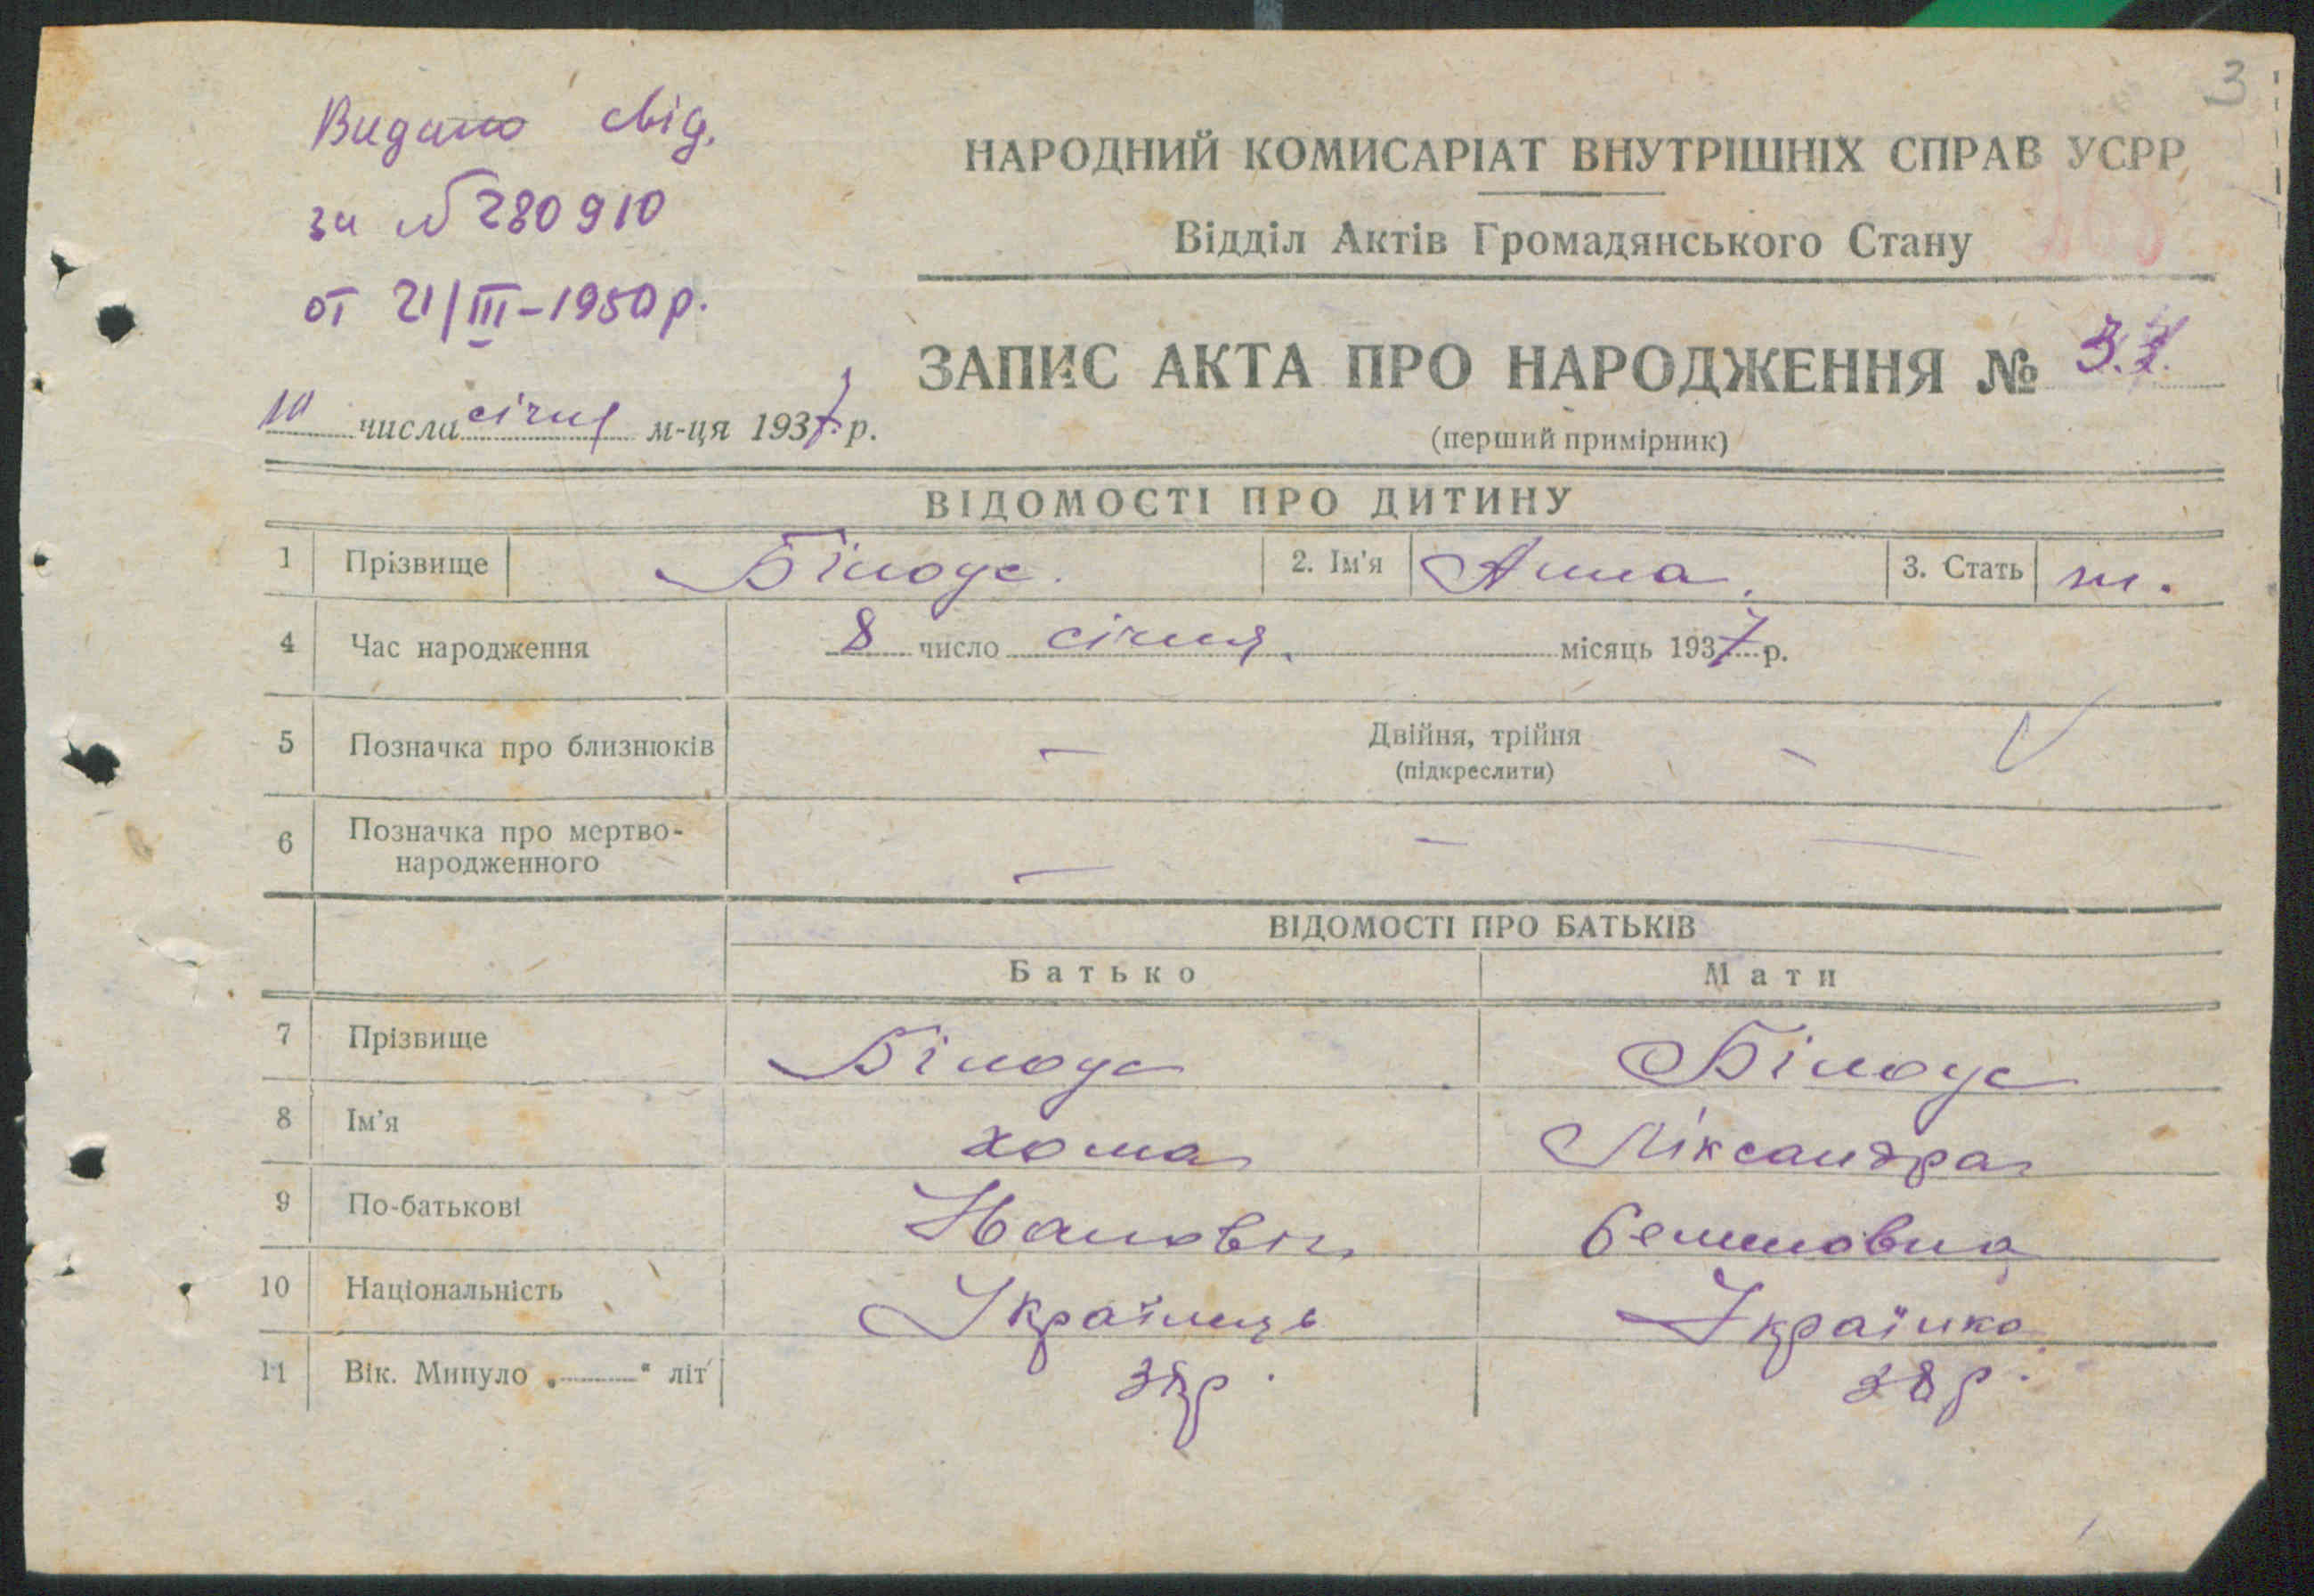 3
Видано свід.
за № 280910
от 21/III-1950 р.
НАРОДНИЙ КОМИСАРІАТ ВНУТРІШНІХ СПРАВ УСРР
Відділ Актів Громадянського Стану
ЗАПИС АКТА ПРО НАРОДЖЕННЯ №
(перший примірник)
10 числа січня м-ця 1937 р.
ВІДОМОСТІ ПРО ДИТИНУ
1 Прізвище Білоус. 2. Ім'я Анна. 3. Стать ж.
4 Час народження 8 число січня. місяць 1937 р.
5 Позначка про близнюків — Двійня, трійня —
(підкреслити)
6 Позначка про мертво-
народженного — — —
ВІДОМОСТІ ПРО БАТЬКІВ
Батько Мати
7 Прізвище Білоус Білоус
8 Ім'я хома Ліксандра
9 По-батькові Івановіч
10 Національність Українець Українка
11 Вік. Минуло „ “ літ 38 р.